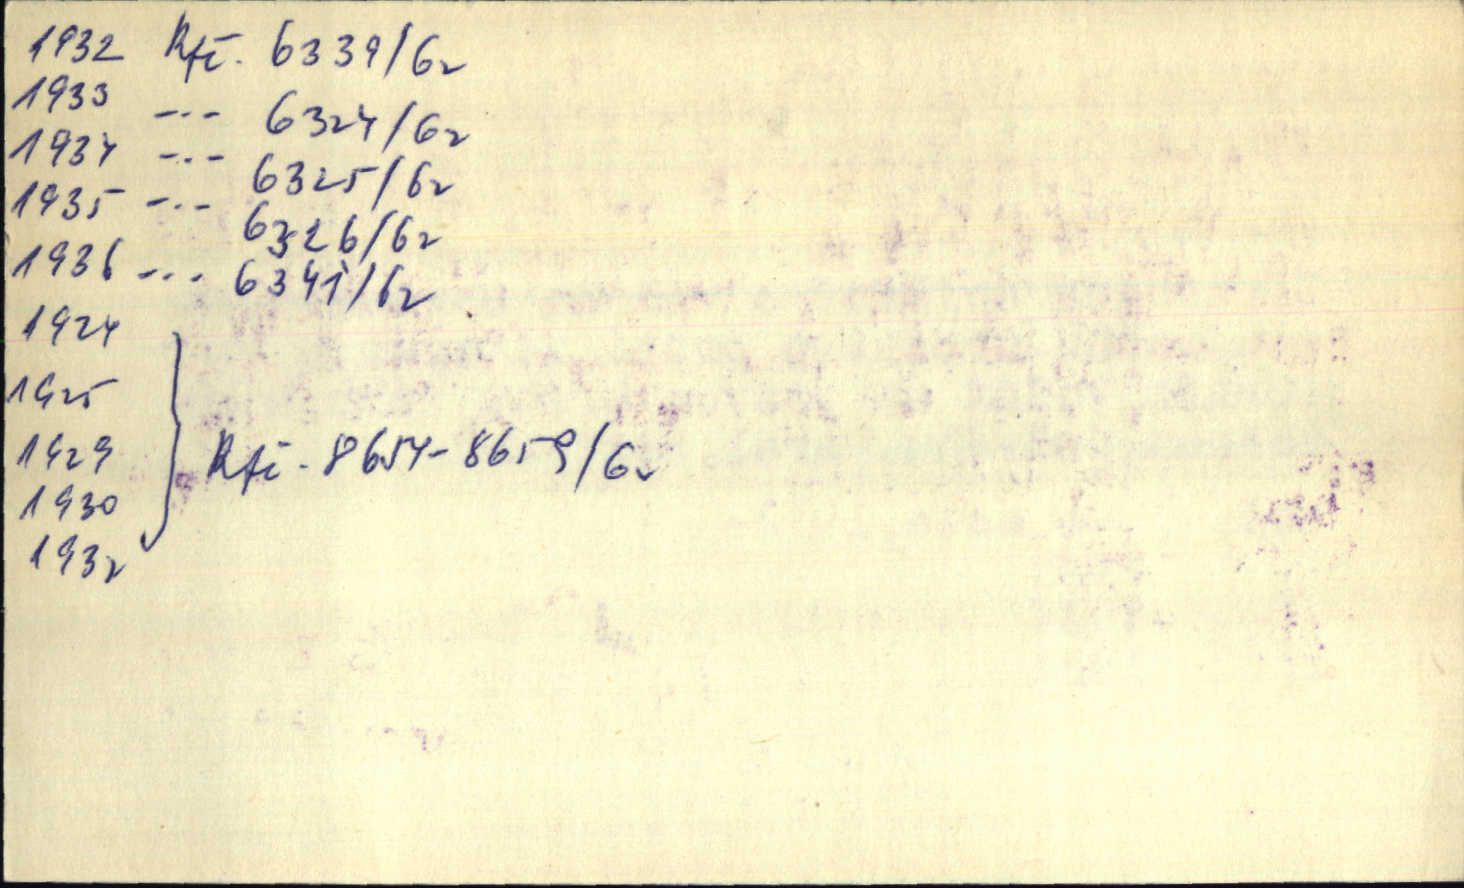 1932 Rfč. 6339/62
1933 -·- 6324/62
1934 -·- 6325/62
1935 -·- 6326/62
1936 -·- 6341/62
1924
1925
1929
Rfč. 8654-8659/62
1930
1932